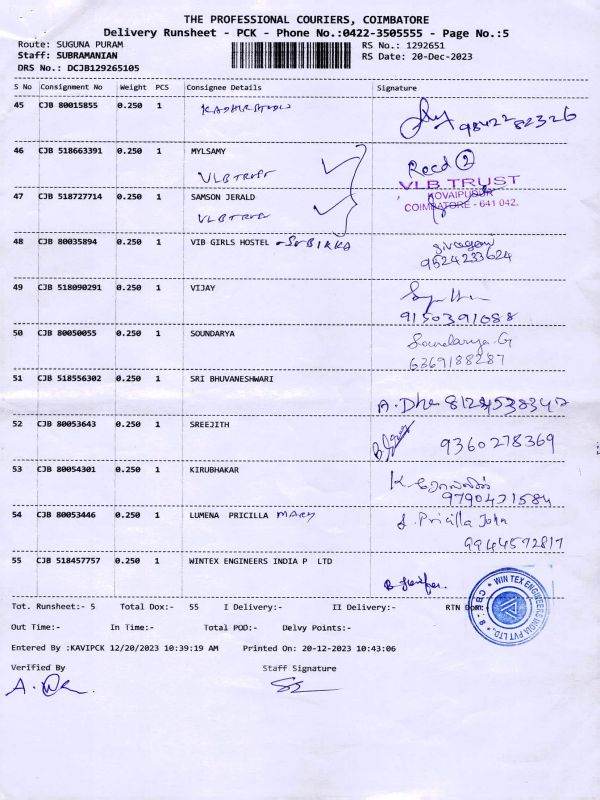 THE PROFESSIONAL COURIERS, COIMBATORE
Delivery Runsheet - PCK - Phone No.:0422-3505555 - Page No.:5
Route: SUGUNA PURAM RS No.: 1292651
Staff: SUBRAMANIAN RS Date: 20-Dec-2023
DRS No.: DCJB129265105
S No Consignment No Weight PCS Consignee Details Signature
45 CJB 80015855 0.250 1
9842282326
46 CJB 518663391 0.250 1 MYLSAMY
VLB TRUST Recd 2
VLB TRUST
47 CJB 518727714 0.250 1 SAMSON JERALD KOVAIPUDUR
VLB TRUST COIMBATORE - 641 042.
48 CJB 80035894 0.250 1 VIB GIRLS HOSTEL - SUBIKKA
9524233624
49 CJB 518090291 0.250 1 VIJAY
9150391088
50 CJB 80050055 0.250 1 SOUNDARYA Soundarya.G
6369188287
51 CJB 518556302 0.250 1 SRI BHUVANESHWARI
A.Dha 8124538347
52 CJB 80053643 0.250 1 SREEJITH
9360278369
53 CJB 80054301 0.250 1 KIRUBHAKAR
9790471584
54 CJB 80053446 0.250 1 LUMENA PRICILLA MARY
J. Pricilla John
9944572817
55 CJB 518457757 0.250 1 WINTEX ENGINEERS INDIA P LTD
WIN TEX ENGINEERS INDIA PVT LTD. CBE - 8
Tot. Runsheet:- 5 Total Dox:- 55 I Delivery:- II Delivery:- RTN Dox:-
Out Time:- In Time:- Total POD:- Delvy Points:-
Entered By :KAVIPCK 12/20/2023 10:39:19 AM Printed On: 20-12-2023 10:43:06
Verified By Staff Signature